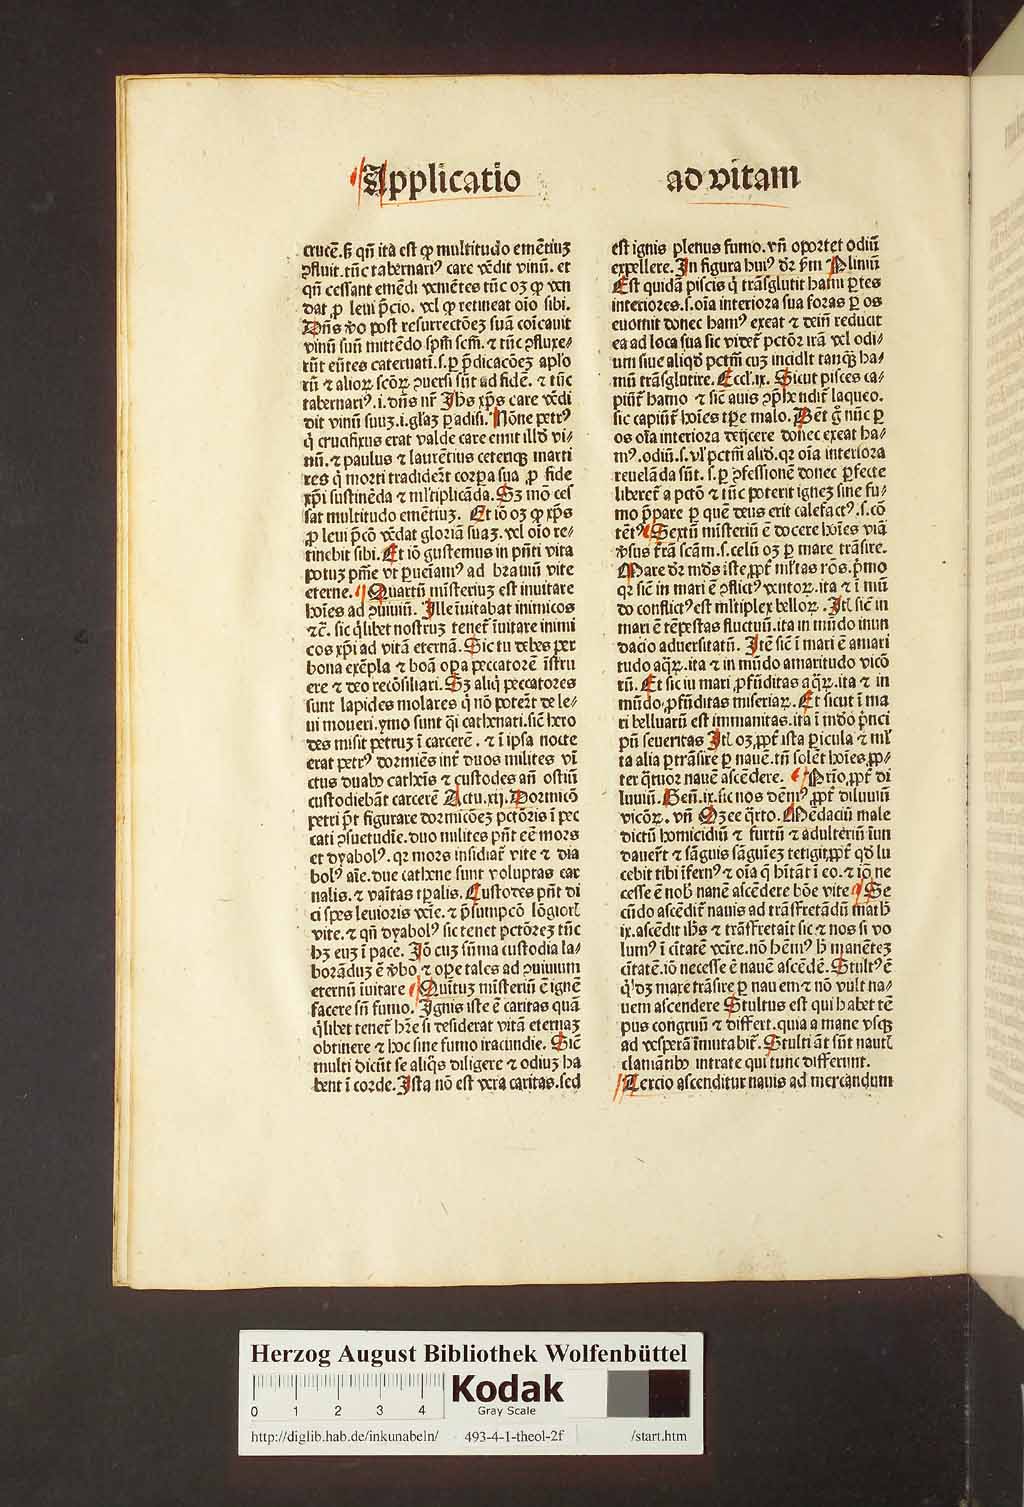 Applicatio ad vitam
crucē. ſꝫ qn̄ ita eſt ꝙ multitudo emētiuꝫ
ꝯfluit. tūc tabernariꝰ care vēdit vinū. et
qn̄ ceſſant emēdi veniētes tūc oꝫ ꝙ ven
dat ꝓ leui p̄cio. vel ꝙ retineat oīo ſibi.
Dn̄s v̄o poſt reſurrectōeꝫ ſuā cōicauit
vinū ſuū mittēdo ſpm̄ ſcm̄. ⁊ tūc ꝯfluxe⸗
rūt gētes cateruati. ſ. ꝑ p̄dicacōeꝫ apło
rū ⁊ alioꝝ ſcōꝝ ꝯuerſi ſūt ad fidē. ⁊ tūc
tabernariꝰ. i. dn̄s nr̄ Ihs xp̄s care vēdi
dit vinū ſuuꝫ. i. gl̄aꝫ paradiſi. Nōne petrꝰ
q̇ crucifixus erat valde care emit illd̄ vi⸗
nū. ⁊ paulus ⁊ laurētius ceteriqꝫ marti
res q̇ morti tradider̄t corpꝑa ſua ꝓ fide
xp̄i ſuſtinēda ⁊ ml̓tiplicāda. Sꝫ mō ceſ
ſat multitudo emētiuꝫ. Et iō oꝫ ꝙ xp̄s
ꝓ leui p̄cō vēdat gloriā ſuaꝫ. vel oīo re⸗
tinebit ſibi. Et iō guſtemus in pn̄ti vita
potuꝫ pn̄ie vt ꝑueniamꝰ ad brauiū vite
eterne. Quartū miſteriuꝫ eſt inuitare
hoīes ad ꝯuiuiū. Ille īuitabat inimicos
⁊cꝭ. ſic q̇libet noſtruꝫ tenet̄ īuitare inimi
cos xp̄i ad vitā eternā. Sic tu debes per
bona exēpla ⁊ boā oꝑa peccatorē īſtru
ere ⁊ deo recōſiliari. Sꝫ aliq̇ peccatores
ſunt lapides molares q̇ nō poter̄t de le⸗
ui moueri. ymo ſunt q̇ſi cathenati. ſic̄ hero
des miſit petruꝫ ī carcerē. ⁊ ī ipſa nocte
erat petrꝰ dormiēs int̄ duos milites vī
ctus duabꝰ cathēis ⁊ cuſtodes an̄ oſtiū
cuſtodiebāt carcerē Actu. xij. Dormicō
petri pt̄ figurare dormicōeꝫ pctōris ī pec
cati ꝯſuetudīe. duo milites pn̄t eē mors
et dyabolꝰ. qꝫ mors inſidiat̄ vite ⁊ dia
bolꝰ aīe. due cathene ſunt voluptas car
nalis. ⁊ vaītas tꝑalis. Cuſtodes pn̄t di
ci ſpes leuioris veīe. ⁊ p̄ſumpcō lōgiorꝭ
vite. ⁊ qn̄ dyabolꝰ ſic tenet pctōreꝫ tūc
hꝫ euꝫ ī pace. Iō cuꝫ ſūma cuſtodia la⸗
borāduꝫ ē v̄bo ⁊ oꝑe tales ad ꝯuiuium
eternū īuitare Quītuꝫ miſteriū ē ignē
facere ſn̄ fumo. Ignis iſte ē caritas quā
q̇libet tenet̄ hr̄e ſi deſiderat vitā eternaꝫ
obtinere ⁊ hoc ſine fumo iracundie. Sic̄
multi dicūt ſe aliq̇s diligere ⁊ odiuꝫ ha
bent ī corde. Iſta nō eſt vera caritas. ſed
eſt ignis plenus fumo. vn̄ oportet odiū
expellere. In figura huiꝰ dr̄ ſm̄ Pliniū
Eſt quidā piſcis q̇ trāſglutit hamū ꝑ tes
interiores. ſ. oīa interiora ſua foras ꝑ os
euomit donec hamꝰ exeat ⁊ dein̄ reducit
ea ad loca ſua ſic videt̄ pctōr irā vel odi⸗
um ſiue aliqd̄ pctm̄ cuꝫ incidit tanqꝫ ha⸗
mū trāſglutire. Eccl̄. ix. Sicut piſces ca⸗
piūt̄ hamo ⁊ ſic̄ auis ꝯp̄hendit̄ laqueo.
ſic capiūt̄ hoīes tꝑe malo. Bet̄ g̊ nūc ꝑ
os oīa interiora reijcere donec exeat ha⸗
mꝰ. odiū. ſ. vl̓ pctm̄ aliō. qꝛ oīa interiora
reuelāda ſūt. ſ. ꝑ ꝯfeſſionē donec ꝑfecte
liberet̄ a pctō ⁊ tūc poterit igneꝫ ſine fu⸗
mo p̄pare ꝑ quē deus erit calefactꝰ. ſ. cō
tētꝰ Sextū miſteriū ē docere hoīes viā
v̓ſus tr̄ā ſcām. ſ. celū oꝫ ꝑ mare trāſire.
Mare dr̄ mūdꝰ iſte ꝓpt̄ ml̓tas rōs. p̄mo
qꝛ ſic̄ in mari ē ꝯflictꝰ ventoꝝ. ita ⁊ ī mū
do conflictꝰ eſt ml̓tiplex belloꝝ. Itꝭ ſic̄ in
mari ē tēpeſtas fluctuū. ita in mūdo inun
dacio aduerſitatū. Itē ſic̄ ī mari ē amari
tudo aq̄ꝝ. ita ⁊ in mūdo amaritudo vicō
rū. Et ſic in mari ꝓfūditas aq̄ꝝ. ita ⁊ in
mūdo ꝓfūditas miſeriaꝝ. Et ſicut ī ma
ri belluarū eſt immanitas. ita ī mūdo p̄nci
pū ſeueritas Itꝭ oꝫ ꝓpt̄ iſta ꝑicula ⁊ ml̓
ta alia ꝑ trāſire ꝑ nauē. tn̄ ſolēt hoīes ꝓp⸗
ter q̄tuor nauē aſcēdere. Prīo ꝓpt̄ di
luuiū. Gen̄. ix. ſic nos dēmꝰ ꝓpt̄ diluuiū
vicōꝝ. vn̄ Oꝫee q̄rto. Mēdaciū male
dictū homicidiū ⁊ furtū ⁊ adulteriū īun
dauer̄t ⁊ ſāguis ſāguineꝫ tetigit ꝓpt̄ qd̄ lu
cebit tibi īfernꝰ ⁊ oīa q̄ hītāt ī eo. ⁊ iō ne
ceſſe ē nob̓ nauē aſcēdere bōe vite Se
cūdo aſcēdit̄ nauis ad trāſfretādū math̓
ix. aſcēdit ih̄s ⁊ trāſfretait ſic ⁊ nos ſi vo
lumꝰ ī citatē veīre. nō hēmꝰ h̓ manēteꝫ
citatē. iō neceſſe ē nauē aſcēdē. Stultꝰ ē
q̇ dꝫ mare trāſire ꝑ nauem ⁊ nō vult na⸗
uem aſcendere Stultus eſt qui habet tē
pus congruū ⁊ differt. quia a mane vſqꝫ
ad veſperā īmutabit̄. Stulti āt ſūt nautꝭ
clamātibꝰ intrate qui tunc differunt.
Tercio aſcenditur nauis ad mercandum
Herzog August Bibliothek Wolfenbüttel
Kodak
Gray Scale
0 1 2 3 4
http://diglib.hab.de/inkunabeln/ 493-4-1-theol-2f /start.htm